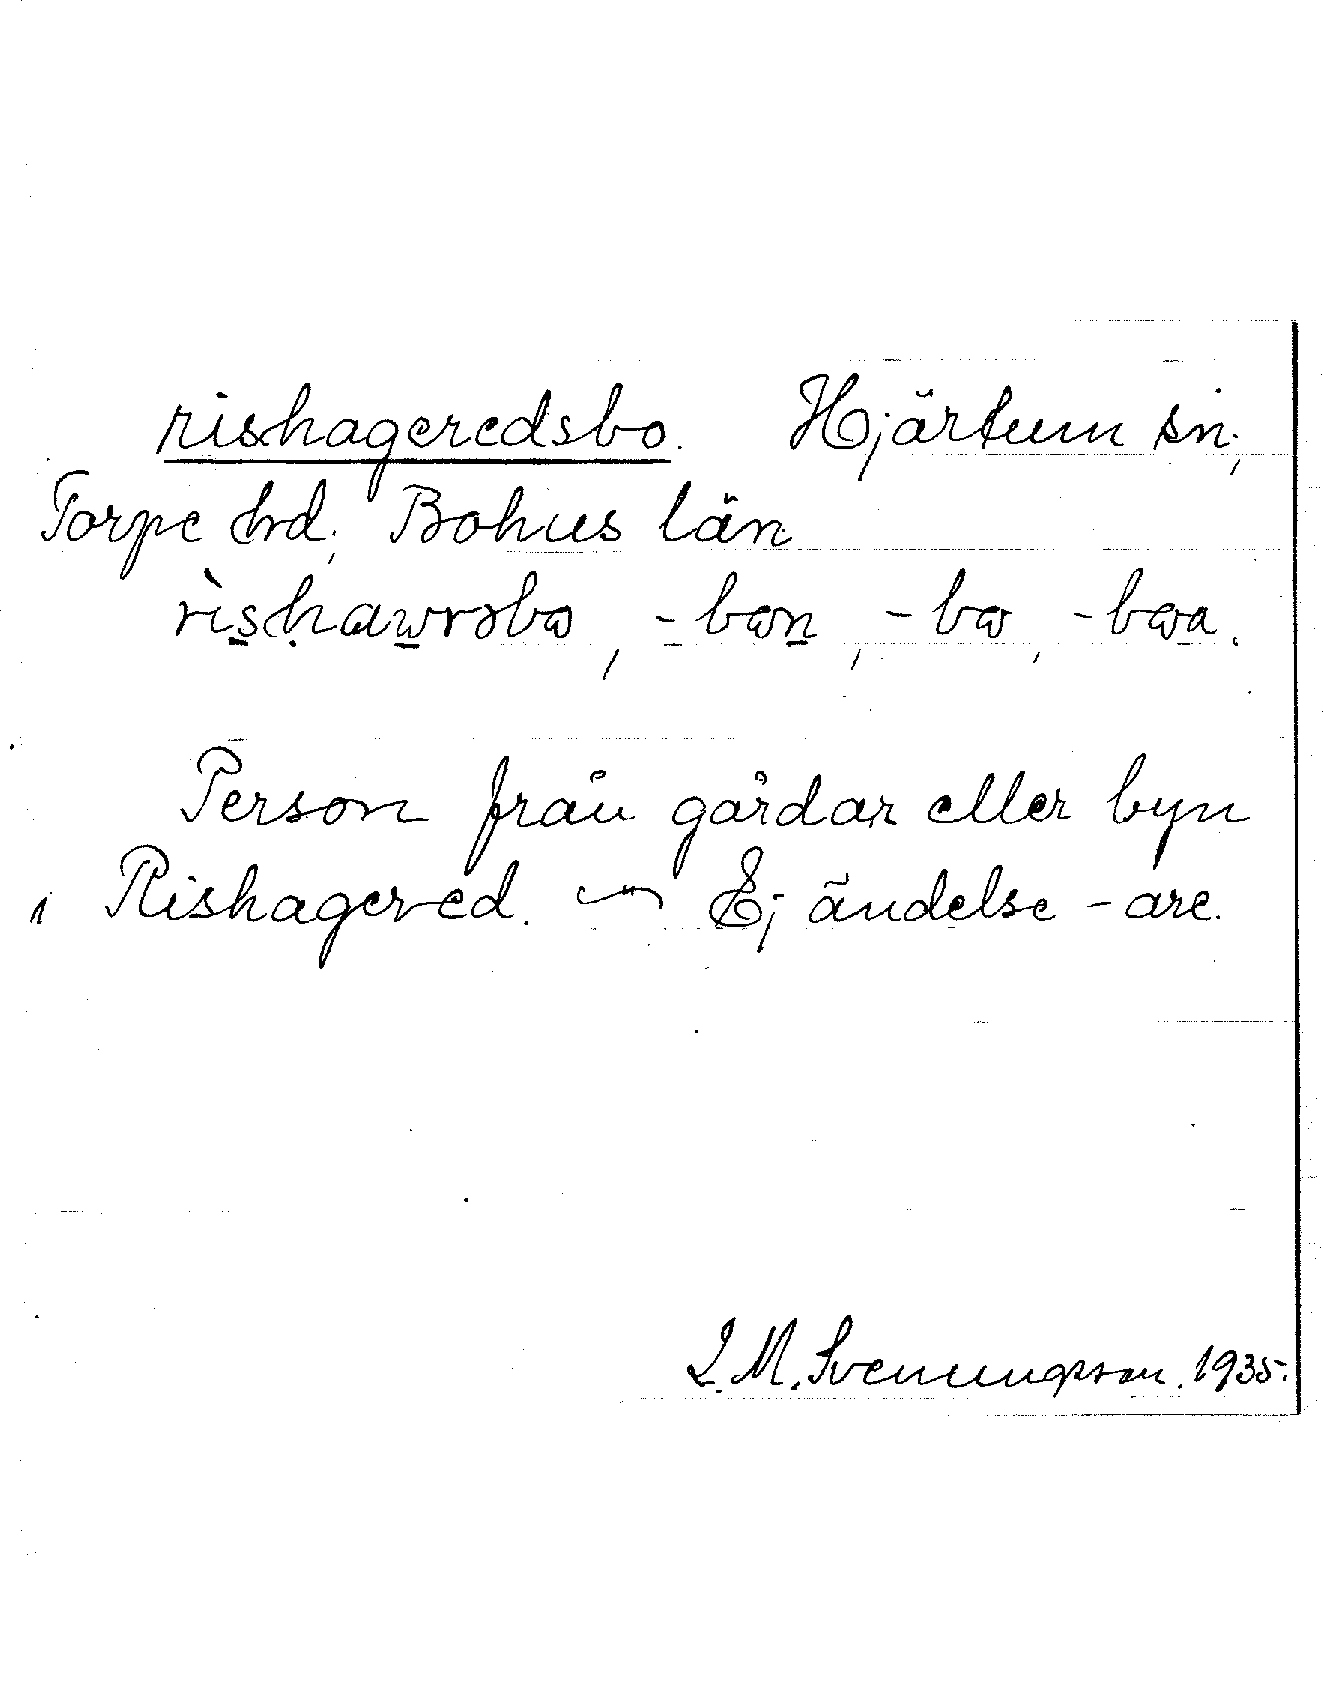 rishageredsbo. Hjärtum sn;
Torpe hd; Bohus län
rìshawrsbω, -bωn, -bω, -bωa.
Person från gårdar eller byn
i Rishagered. ~ Ej ändelse -are.
L. M. Svenungsson. 1935.